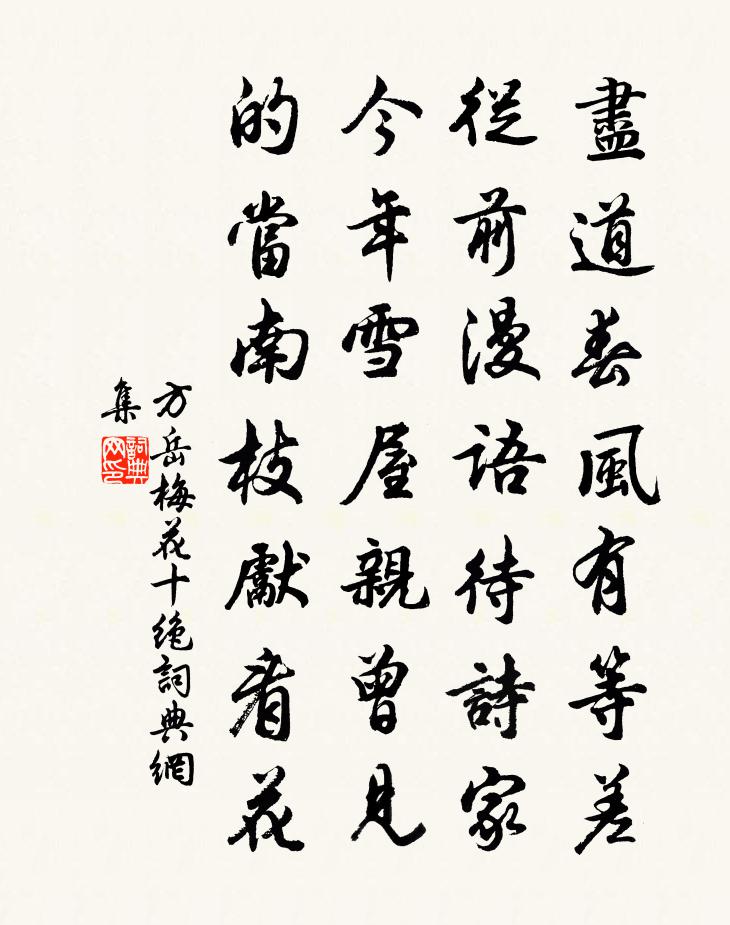 盡道春風有等差
從前漫語待詩家
今年雪屋親曾見
的當南枝獻看花
方岳梅花十絶詞典網
集
詞典網印